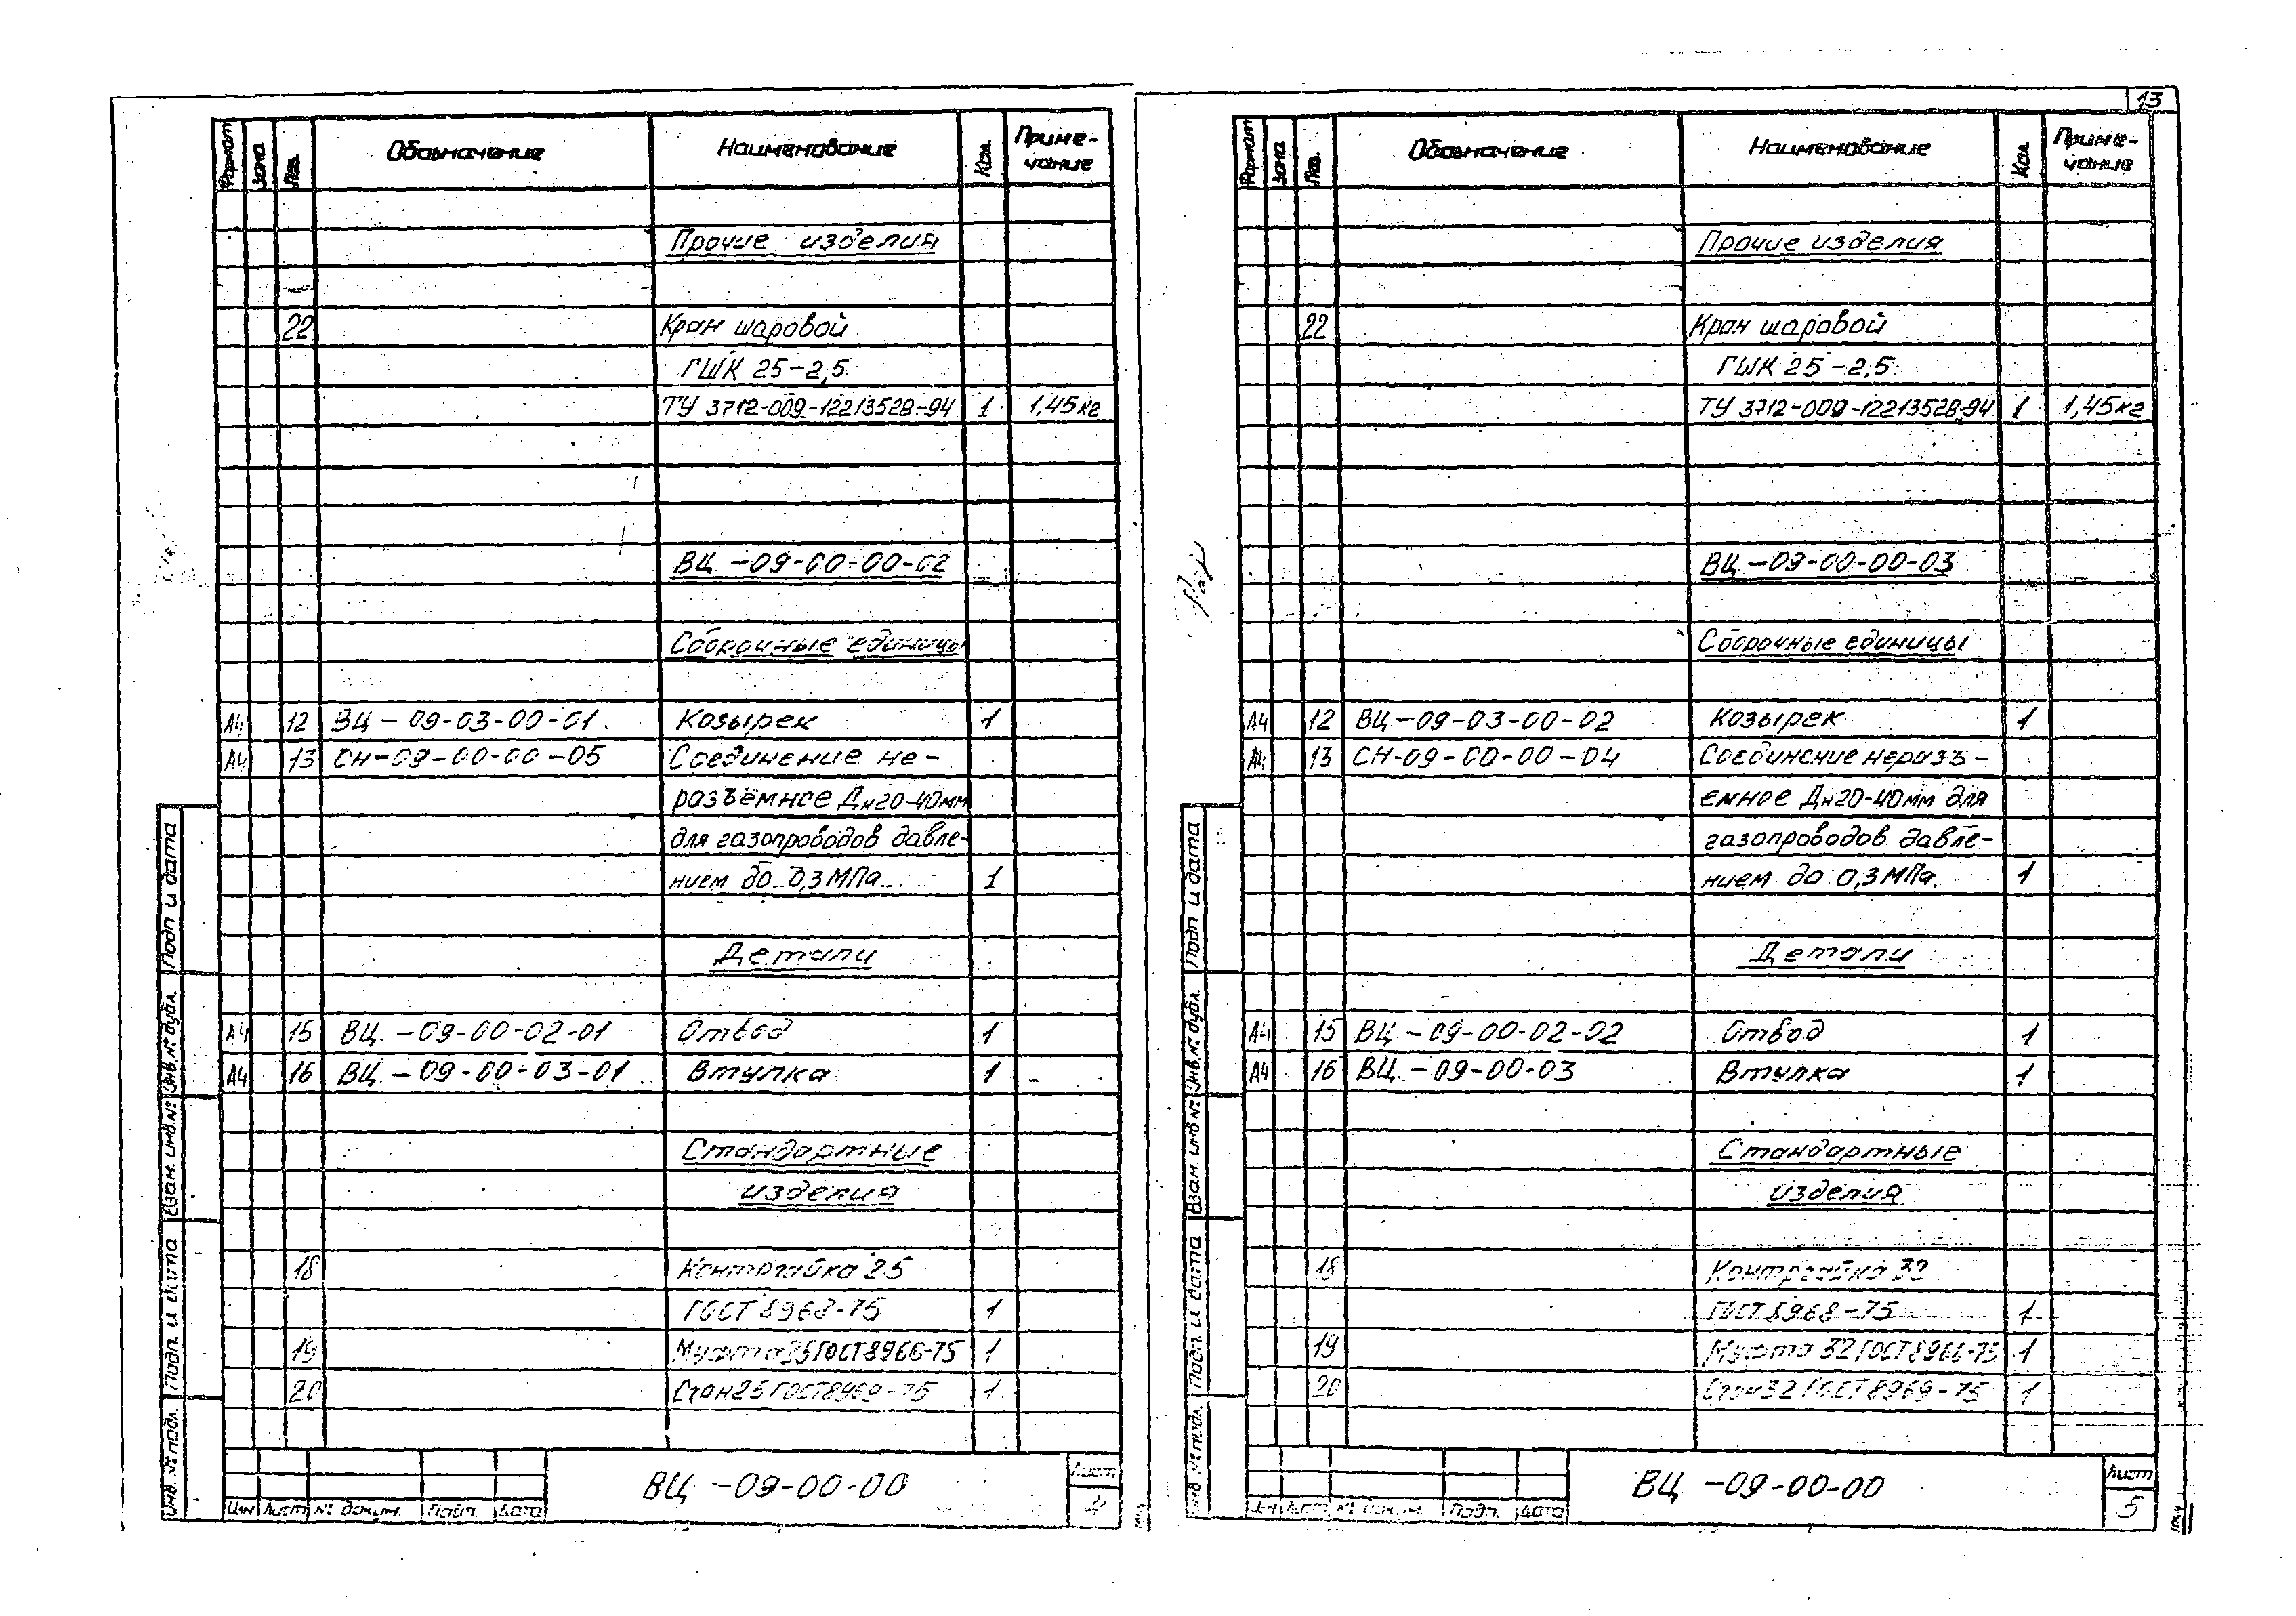 Формат Зона Поз. Обозначение Наименование Кол. Приме-
чание
Прочие изделия
22 Кран шаровой
ГШК 25-2,5
ТУ 3712-009-12213528-94 1 1,45кг
ВЦ-09-00-00-02
Сборочные единицы
А4 12 ВЦ-09-03-00-01 Козырек 1
А4 13 СН-09-00-00-05 Соединение не-
разъёмное Дн20-40мм
для газопроводов давле-
нием до 0,3 МПа 1
Детали
А4 15 ВЦ-09-00-02-01 Отвод 1
А4 16 ВЦ-09-00-03-01 Втулка 1
Стандартные
изделия
18 Контргайка 25
ГОСТ 8968-75 1
19 Муфта 25 ГОСТ 8966-75 1
20 Сгон 25 ГОСТ 8969-75 1
Подп. и дата
Инв. № дубл.
Взам. инв. №
Подп. и дата
Инв. № подл.
Изм Лист № докум. Подп. Дата
ВЦ-09-00-00
Лист
4
13
Формат Зона Поз. Обозначение Наименование Кол. Приме-
чание
Прочие изделия
22 Кран шаровой
ГШК 25-2,5
ТУ 3712-009-12213528-94 1 1,45кг
ВЦ-09-00-00-03
Сборочные единицы
А4 12 ВЦ-09-03-00-02 Козырек 1
А4 13 СН-09-00-00-04 Соединение неразъ-
емное Дн20-40мм для
газопроводов давле-
нием до 0,3 МПа. 1
Детали
А4 15 ВЦ-09-00-02-02 Отвод 1
А4 16 ВЦ-09-00-03 Втулка 1
Стандартные
изделия
18 Контргайка 32
ГОСТ 8968-75 1
19 Муфта 32 ГОСТ 8966-75 1
20 Сгон 32 ГОСТ 8969-75 1
Подп. и дата
Инв. № дубл.
Взам. инв. №
Подп. и дата
Инв. № подл.
Изм Лист № докум. Подп. Дата
ВЦ-09-00-00
Лист
5